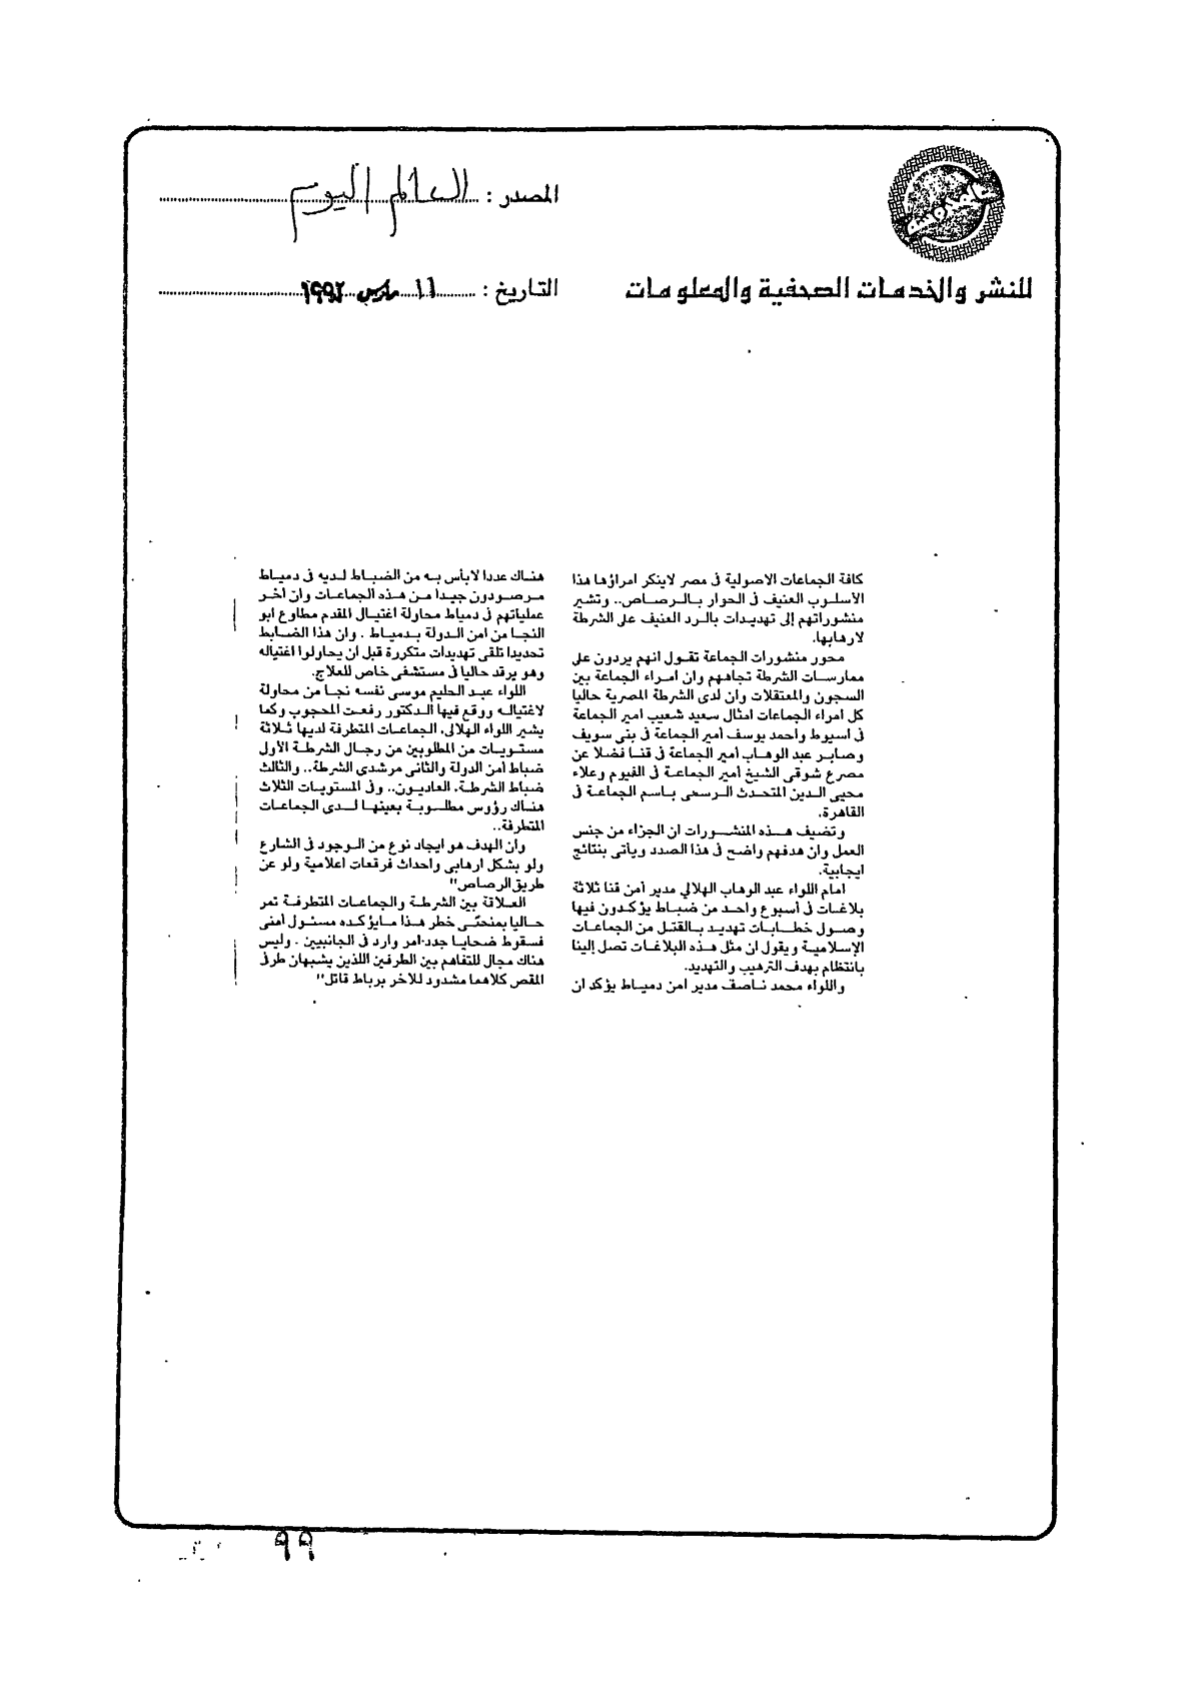 المصدر : العالم اليوم
للنشر والخدمات الصحفية والمعلومات
التاريخ : ١١ مارس ١٩٩٢
كافة الجماعات الاصولية فى مصر لاينكر امراؤها هذا
الأسلوب العنيف فى الحوار بالرصاص.. وتشير
منشوراتهم إلى تهديدات بالرد العنيف على الشرطة
لارهابها.
محور منشورات الجماعة تقول انهم يردون على
ممارسات الشرطة تجاههم وان امراء الجماعة بين
السجون والمعتقلات وان لدى الشرطة المصرية حاليا
كل امراء الجماعات امثال سعيد شعيب امير الجماعة
فى اسيوط واحمد يوسف أمير الجماعة فى بنى سويف
وصابر عبد الوهاب أمير الجماعة فى قنا فضلا عن
مصرع شوقى الشيخ أمير الجماعة فى الفيوم وعلاء
محيى الدين المتحدث الرسمى باسم الجماعة فى
القاهرة.
وتضيف هذه المنشورات ان الجزاء من جنس
العمل وان هدفهم واضح فى هذا الصدد ويأتى بنتائج
ايجابية.
امام اللواء عبد الوهاب الهلالي مدير أمن قنا ثلاثة
بلاغات فى أسبوع واحد من ضباط يؤكدون فيها
وصول خطابات تهديد بالقتل من الجماعات
الإسلامية ويقول ان مثل هذه البلاغات تصل إلينا
بانتظام بهدف الترهيب والتهديد.
واللواء محمد ناصف مدير امن دمياط يؤكد ان
هناك عددا لابأس به من الضباط لديه فى دمياط
مرصودون جيدا من هذه الجماعات وان أخر
عملياتهم فى دمياط محاولة اغتيال المقدم مطاوع ابو
النجا من امن الدولة بدمياط . وان هذا الضابط
تحديدا تلقى تهديدات متكررة قبل ان يحاولوا اغتياله
وهو يرقد حاليا فى مستشفى خاص للعلاج.
اللواء عبد الحليم موسى نفسه نجا من محاولة
لاغتياله ووقع فيها الدكتور رفعت المحجوب وكما
يشير اللواء الهلالى. الجماعات المتطرفة لديها ثلاثة
مستويات من المطلوبين من رجال الشرطة الأول
ضباط امن الدولة والثانى مرشدى الشرطة.. والثالث
ضباط الشرطة. العاديون.. وفى المستويات الثلاث
هناك رؤوس مطلوبة بعينها لدى الجماعات
المتطرفة..
وان الهدف هو ايجاد نوع من الوجود فى الشارع
ولو بشكل ارهابى واحداث فرقعات اعلامية ولو عن
طريق الرصاص"
العلاقة بين الشرطة والجماعات المتطرفة تمر
حاليا بمنحنى خطر هذا مايؤكده مسئول أمنى
فسقوط ضحايا جدد امر وارد فى الجانبين . وليس
هناك مجال للتفاهم بين الطرفين اللذين يشبهان طرفى
المقص كلاهما مشدود للآخر برباط قاتل"
٩٩